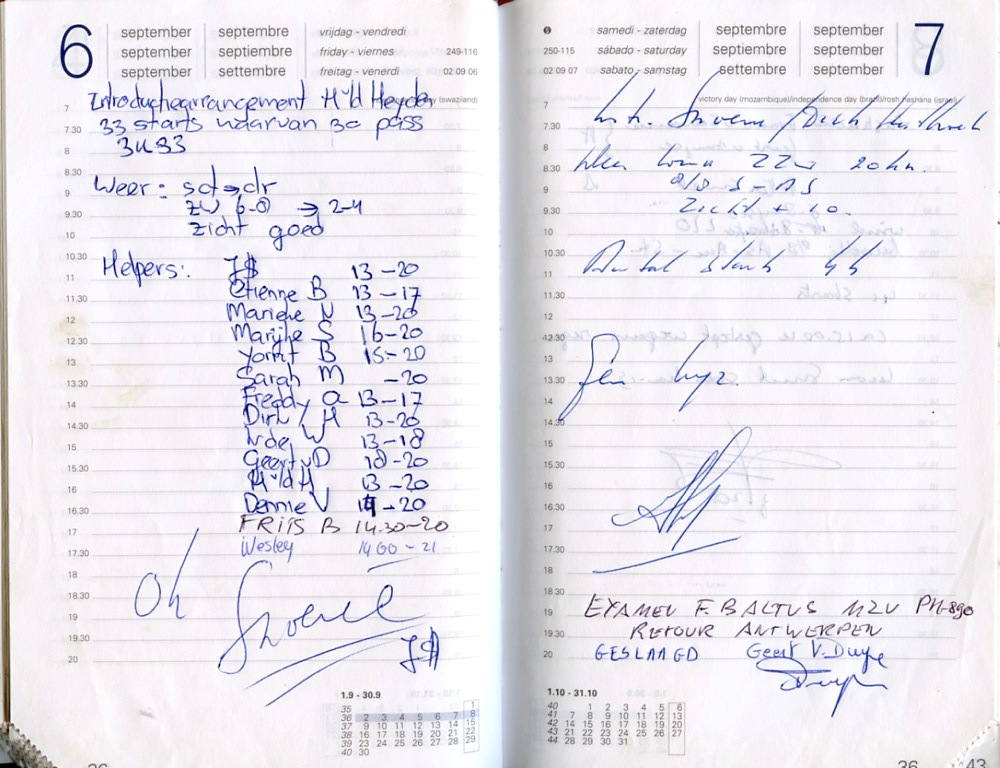 6
september septembre vrijdag - vendredi
september septiembre friday - viernes 249-116
september settembre freitag - venerdi 02 09 06
(swaziland)
7 Introductiearrangement H v'ld Heyden
7.30 33 starts waarvan 30 pass
8 3u33
8.30
9 Weer: sct → dr
ZW 6-8 → 2-4
9.30 zicht goed
10
10.30 Helpers: J$ 13-20
11 Etienne B 13-17
11.30 N 13-20
12 Marijke S 16-20
12.30 Yorift B 15-20
13 Sarah M -20
13.30 Freddy 13-17
14 Dirk H 13-20
14.30 W 13-18
15 Geert vD 18-20
15.30 H v'ld H 13-20
16 Dennie V 14-20
16.30 FRITS B 14.30-20
17 Wesley 14 00 - 21
17.30
18 Oh
18.30
19
19.30 J$
20
1.9 - 30.9
35 1
36 2 3 4 5 6 7 8
37 9 10 11 12 13 14 15
38 16 17 18 19 20 21 22
39 23 24 25 26 27 28 29
40 30
7
samedi - zaterdag septembre september
250-115 sábado - saturday septiembre september
02 09 07 sabato - samstag settembre september
victory day (mozambique)/independence day (brazil)/rosh hashana (israel)
7
7.30 Dick
8
8.30 ZZW 20 kn.
9 8/8 S-AS
9.30 Zicht + 10.
10
10.30
11 Aantal starts 44
11.30
12
12.30
13
13.30 Geen
14
14.30
15
15.30
16
16.30
17
17.30
18
18.30
19 EXAMEN F. BALTUS MZV PH-890
19.30 RETOUR ANTWERPEN
20 GESLAAGD Geert V. Duyse
1.10 - 31.10
40 1 2 3 4 5 6
41 7 8 9 10 11 12 13
42 14 15 16 17 18 19 20
43 21 22 23 24 25 26 27
44 28 29 30 31